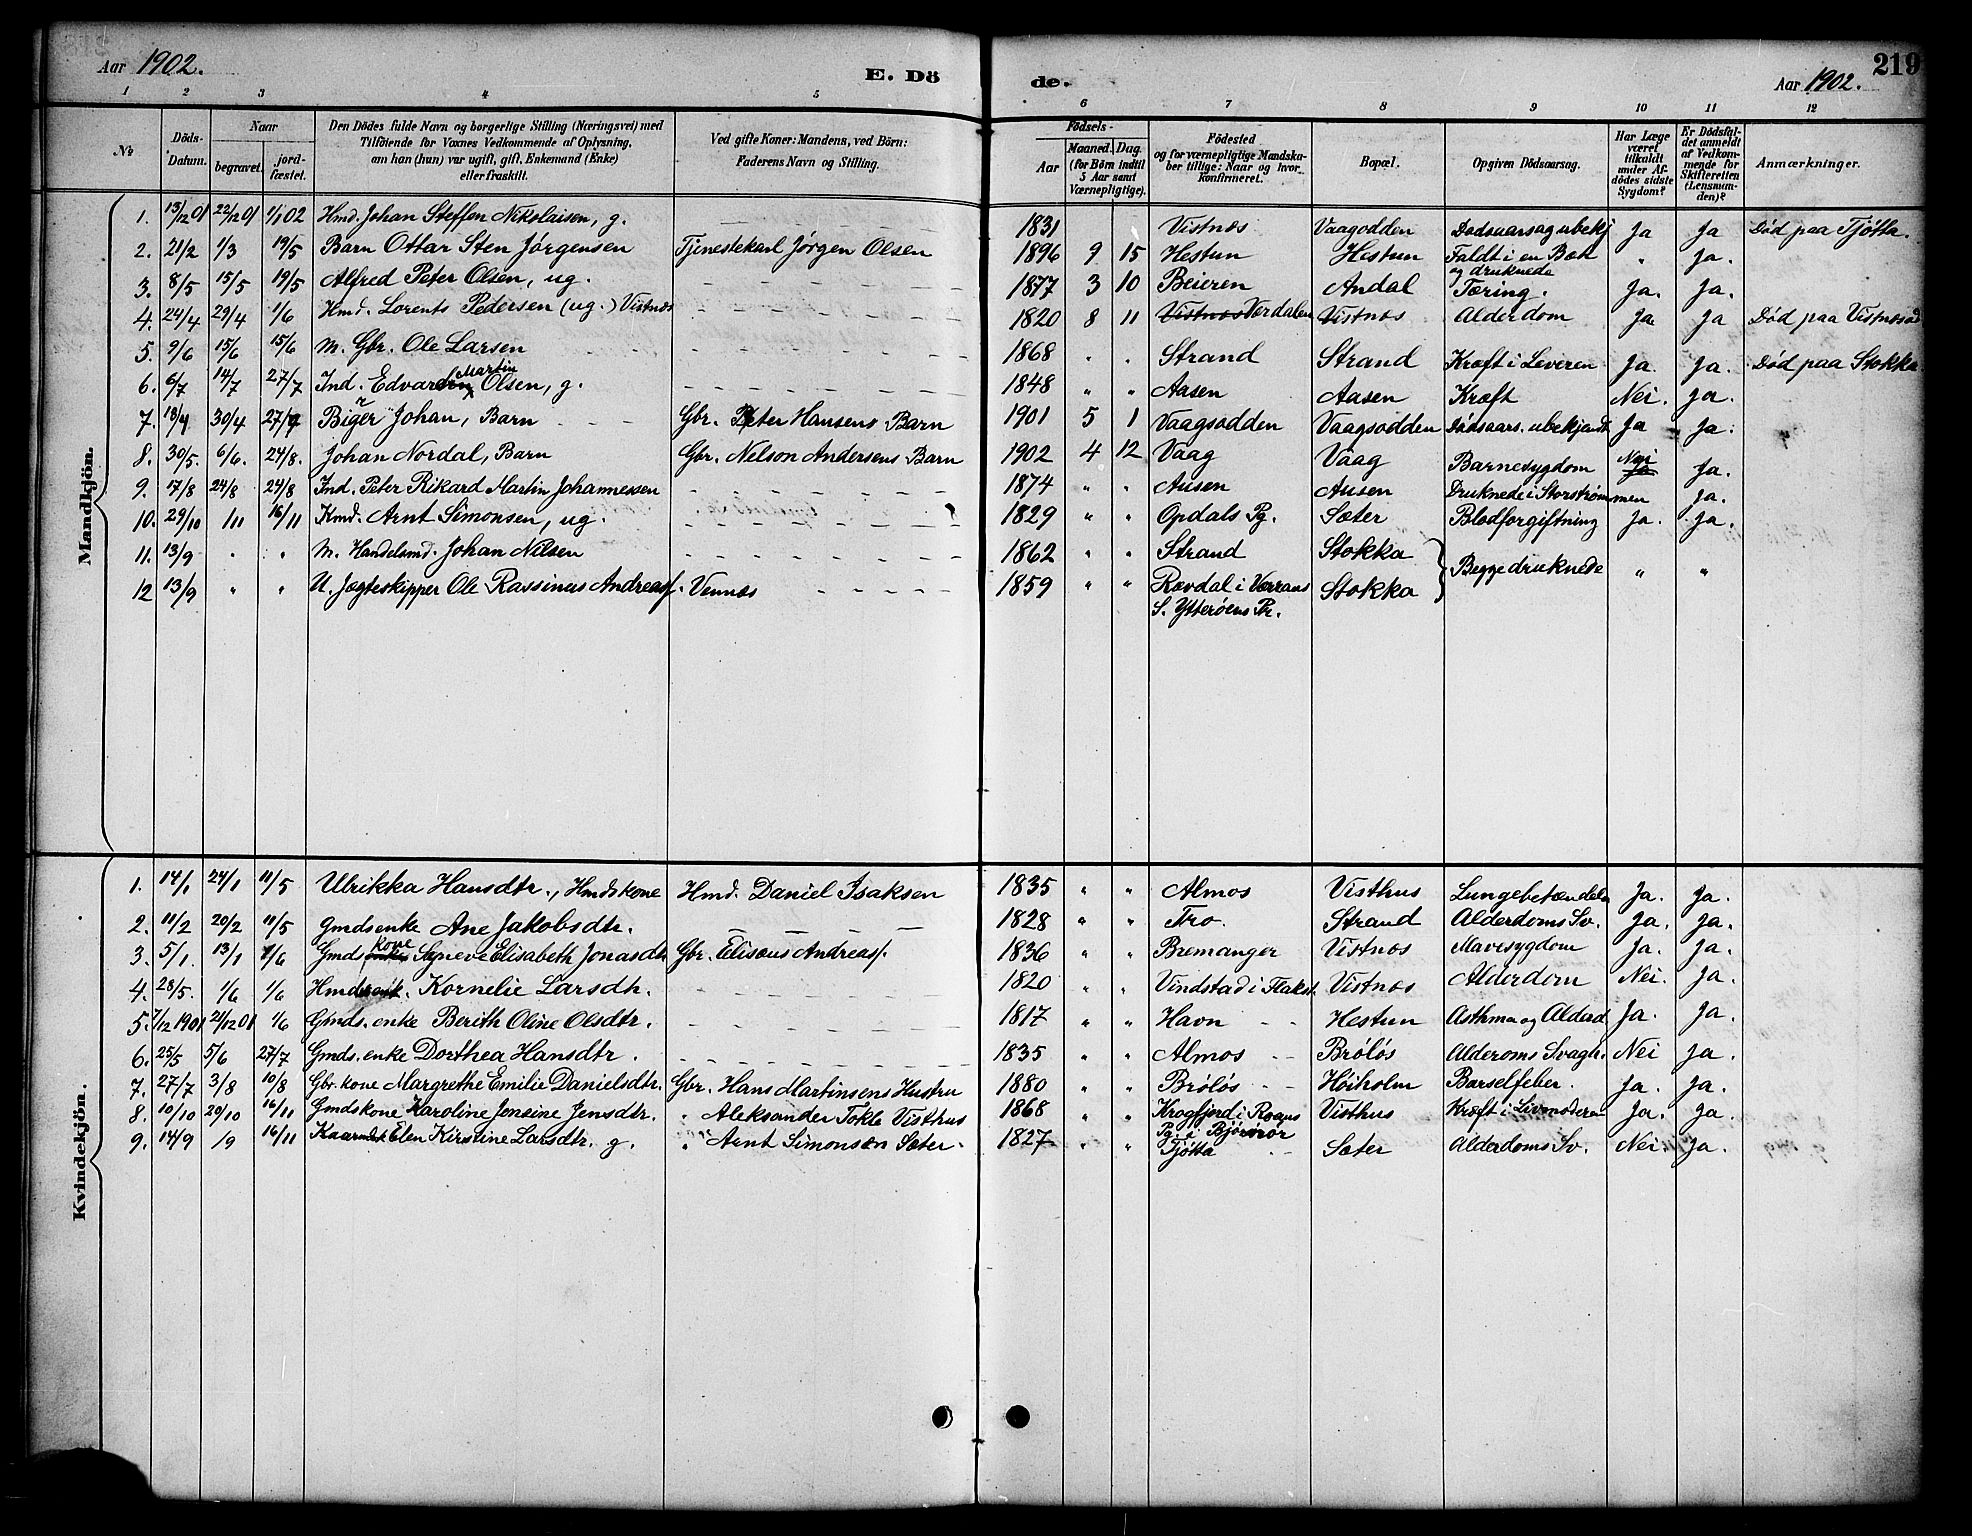 Aar 1902. E. Dö de. Aar 1902. 219
1 2 3 4 5 6 7 8 9 10 11 12
№ Döds-Datum. Naar begravet. jordfæstet. Den Dödes fulde Navn og borgerlige Stilling (Næringsvei) med Tilföiende for Voxnes Vedkommende af Oplysning, om han (hun) var ugift, gift, Enkemand (Enke) eller fraskilt. Ved gifte Koner: Mandens, ved Börn: Faderens Navn og Stilling. Födsels- Aar Maaned. Dag. (for Börn indtil 5 Aar samt Værnepligtige). Födested og for værnepligtige Mandskaber tillige: Naar og hvor konfirmeret. Bopæl. Opgiven Dödsaarsag. Har Læge været tilkaldt under Afdödes sidste Sygdom? Er Dödsfaldet anmeldt af Vedkommende for Skifteretten (Lensmanden)? Anmærkninger.
Mandkjön.
1. 13/12 01 22/12 01 1/1 02 Hmd. Johan Steffen Nikolaisen, g. 1831 Vistnæs Vaagodden Dødsaarsag ubekj Ja Ja Død paa Tjøtta.
2. 21/2 1/3 19/5 Barn Ottar Sten Jørgensen Tjenestekarl Jørgen Olsen 1896 9 15 Hestun Hestun Faldt i en Bæk og druknede " Ja.
3. 8/5 15/5 19/5 Alfred Peter Olsen, ug. 1877 3 10 Beieren Andal Tæring. Ja. Ja.
4. 24/4 29/4 1/6 Hmd. Lorents Pedersen (ug.) Vistnæs 1820 8 11 Vistnæs Verdalen Vistnæs Alderdom Ja Ja Død paa Vistnæsød
5. 9/6 15/6 15/6 M. Gbr. Ole Larsen 1868 " " Strand Strand Kræft i Leveren Ja. Ja. Død paa Stokka
6. 6/7 14/7 27/7 Ind. Edvard Martin Olsen, g. 1848 " " Aasen Aasen Kræft Nei. Ja.
7. 18/4 30/4 27/7 Birger Johan, Barn Gbr. Peter Hansens Barn 1901 5 1 Vaagsodden Vaagsodden Dødsaars. ubekjendt Ja Ja.
8. 30/5. 6/6. 24/8. Johan Nordal, Barn Gbr. Nelson Andersens Barn 1902 4 12 Vaag Vaag Barnesygdom Nei Ja Ja.
9. 17/8 24/8 24/8 Ind. Peter Rikard Martin Johannessen 1874 " " Ausen Ausen Druknede i Storstrømmen Ja.
10. 29/10 1/11 16/11 Kmd. Arnt Simonsen, ug. 1829 " " Opdals Pg. Sæter Blodforgiftning Ja. Ja.
11. 13/9 " " M. Handelsmd. Johan Nilsen 1862 " " Strand Stokka Begge druknede " "
12 13/9 " " U. Jægteskipper Ole Rassinus Andreasf. Vennæs 1859 " " Rovdal i Værrans S. Ytterøens Pr. Stokka
Kvindekjön.
1. 14/1 24/1 11/5 Ulrikka Hansdtr., Hmdskone Hmd. Daniel Isaksen 1835 " " Almos Visthus Lungebetændelse Ja. Ja.
2. 11/2 20/2 11/5 Gmdsenke Ane Jakobsdtr. 1828 " " Tro. Strand AlderdomsSv. Ja. Ja.
3. 5/1. 13/1 1/6 Gmds kone Syneve Elisabeth Jonasdtr Gbr. Elisæus Andreasf. 1836 " " Bremanger Vistnæs Mavesygdom Ja. Ja.
4. 28/5. 1/6 1/6 Hmdsenk. Kornelie Larsdtr. 1820 " " Vindstad i Flakst. Vistnæs Alderdom Nei. Ja.
5. 7/12 1901 21/12 01 1/6 Gmds. enke Berith Oline Olsdtr. 1817 " " Havn Hestun Asthma og Alderd Ja. Ja.
6. 25/5 5/6 27/7 Gmds. enke Dorthea Hansdtr. 1835 " " Almos Brøløs Alderoms Svagh. Nei Ja.
7. 27/7 3/8 10/8 Gbr. kone Margrethe Emilie Danielsdtr. Gbr. Hans Martinsens Hustru 1880 " " Brøløs Høiholm Barselfeber. Ja. Ja.
8. 10/10 20/10 16/11 Gmdskone Karoline Jensine Jensdtr. " Aleksander Tokle Visthus 1868 " " Krogfjord i Roans Pg. i Bjørnør Visthus Kræft i Livmoderen Ja. Ja.
9. 14/9 /9 16/11 Elen Kirstine Larsdtr. g. " Arnt Simonsen Sæter. 1827 " " Tjøtta Sæter AlderdomsSv. Nei. Ja.